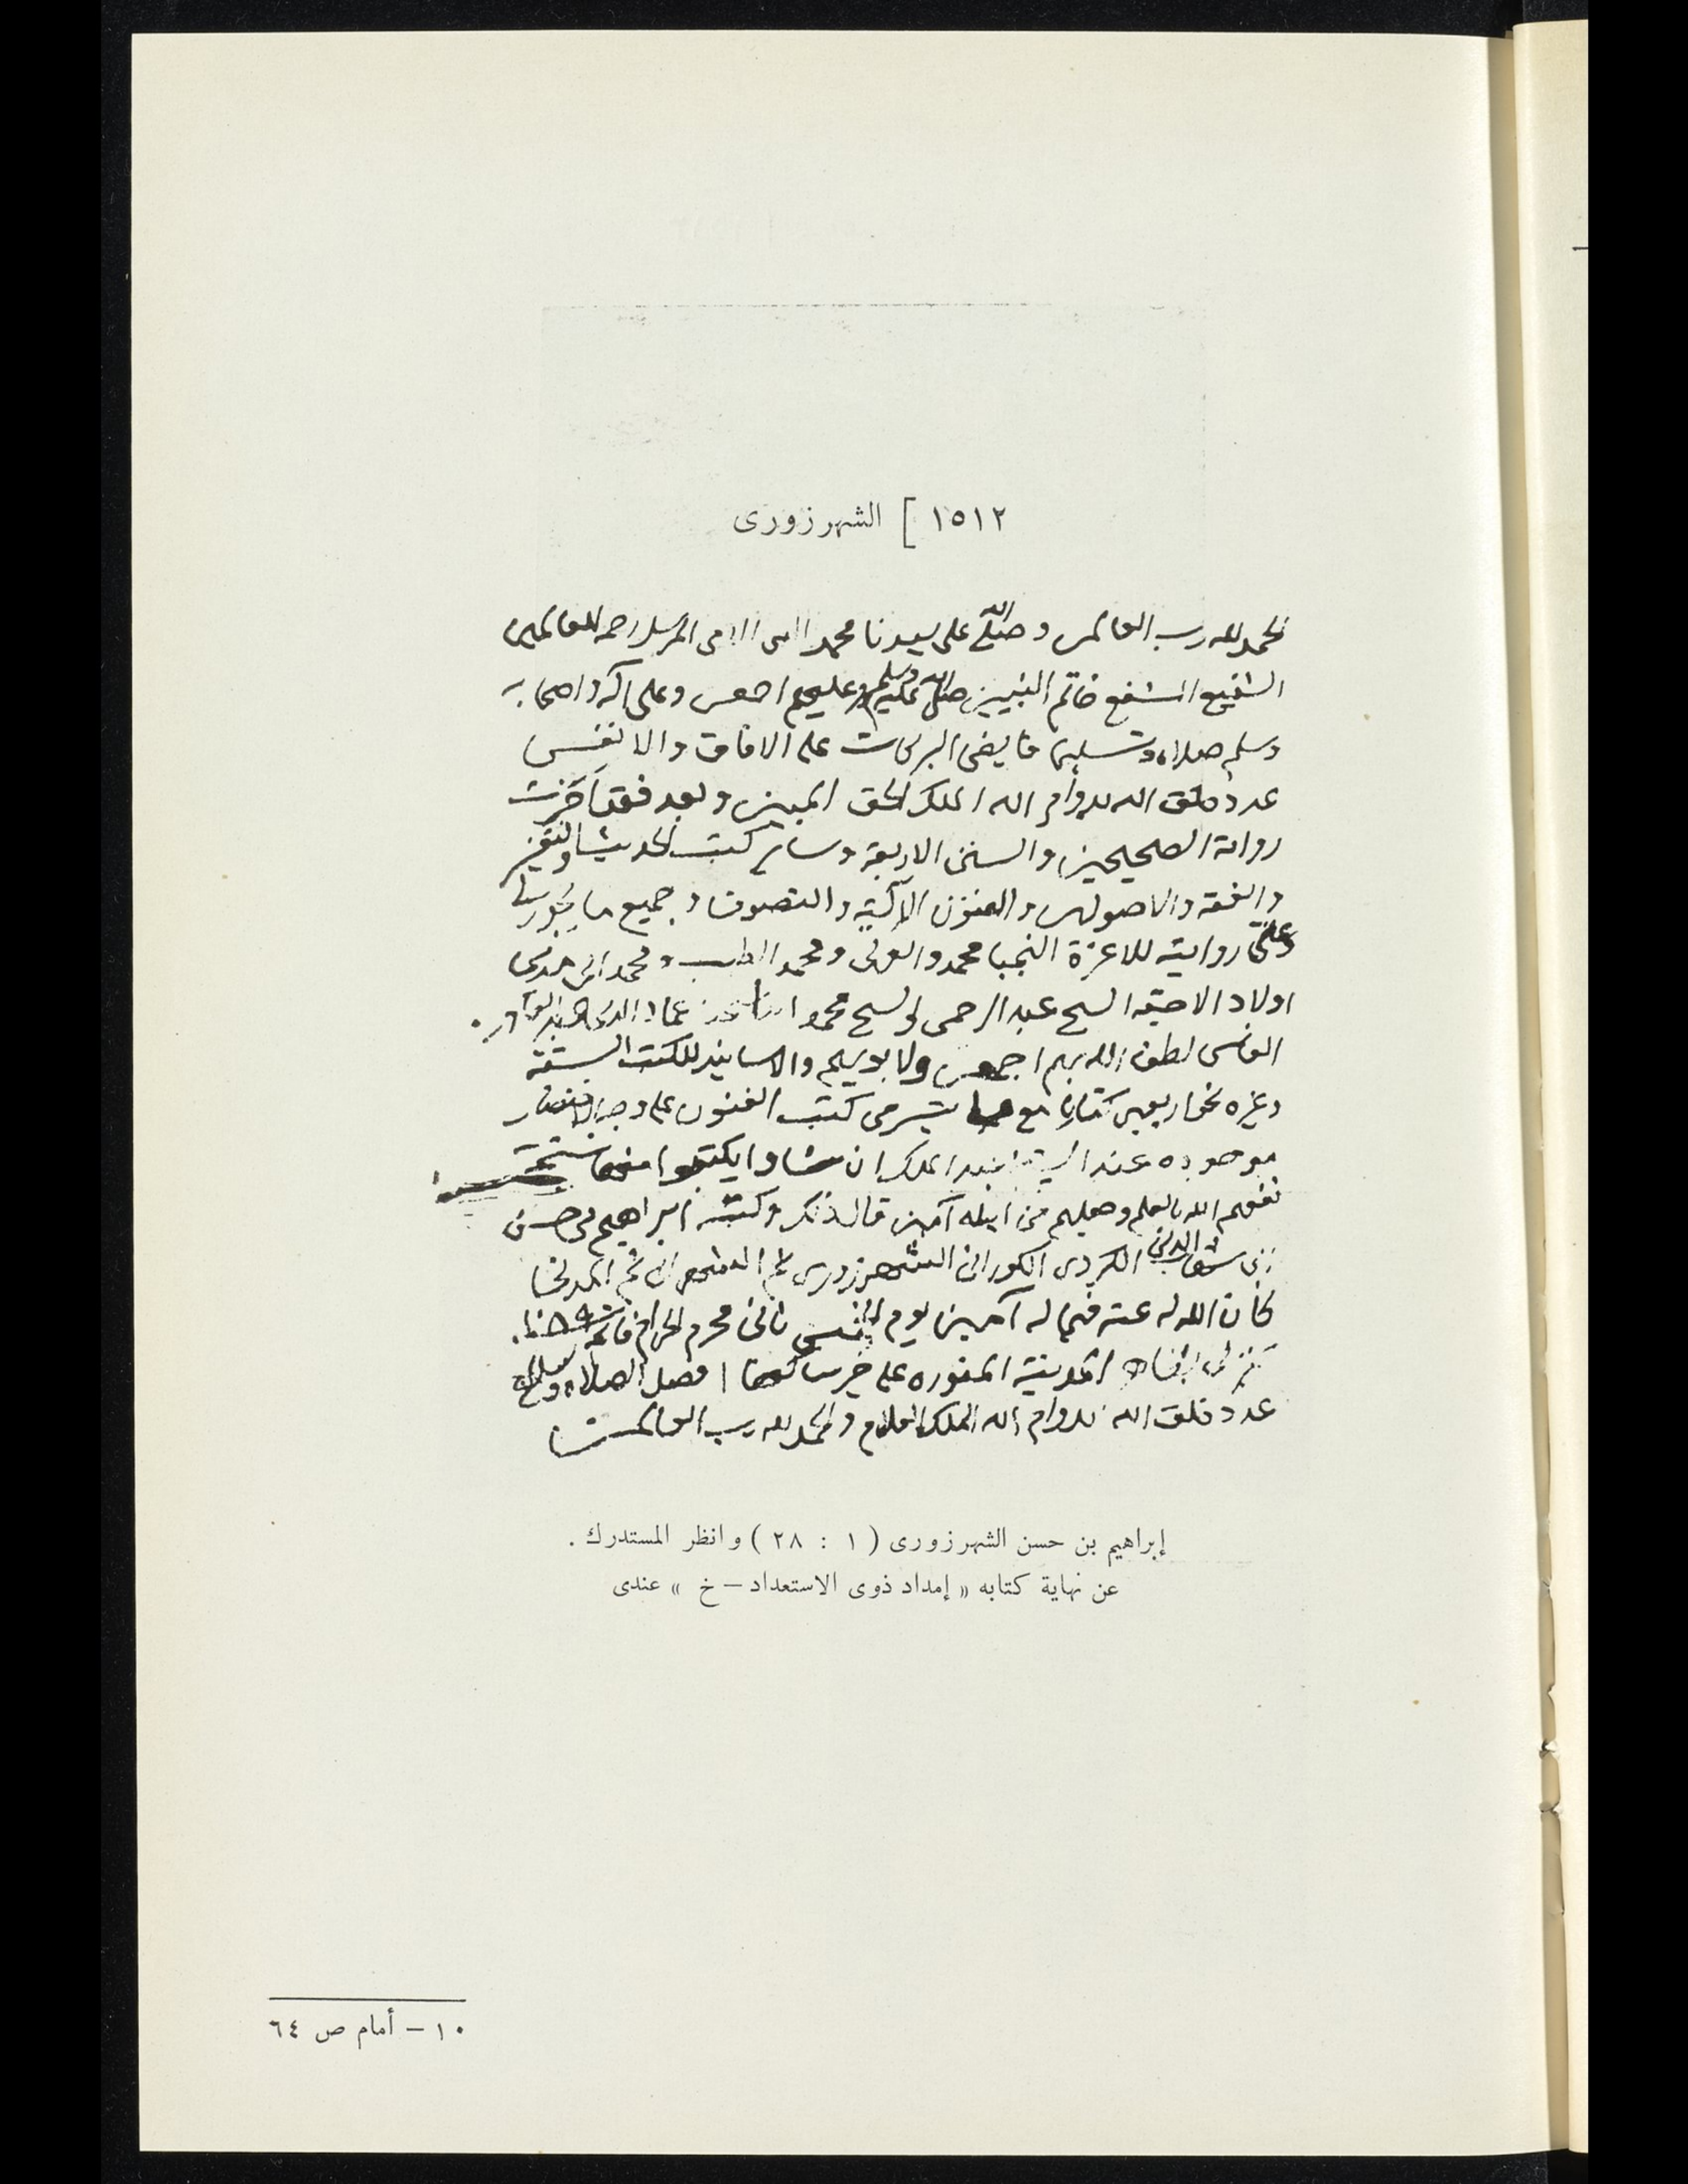 ١٥١٢ ] الشهرزورى
الحمد لله رب العالمين وصلى الله على سيدنا محمد النبى الامى المرسل رحمة للعالمين
الشفيع المشفع خاتم النبيين صلى الله عليه وسلم وعليهم اجمعين وعلى اله واصحابه
وسلم صلاة وتسليما فايضى البركات على الافاق والانفس
عدد خلق الله بدوام الله الملك الحق المبين وبعد فقد اجزت
رواية الصحيحين والسنن الاربعة وسائر كتب الحديث والتفسير
والفقه والاصولين والفنون الآلية والتصوف وجميع ما يجوز لى
وعنى روايته للاعزة النجبا محمد و ومحمد الطيب ومحمد
اولاد الشيخ عبد الرحمن الشيخ محمد عبد القادر
الفاسى لطف الله بهم اجمعين والاسانيد للكتب الستة
وغيره نحو اربعين كتابا مع من كتب الفنون على وجه الاختصار
موجوده عند عبد الملك ان شاوا يكتبوا منها نسخة
نفعهم الله بالعلم وجعلهم من اهله آمين قال ذلك وكتبه ابراهيم بن حسن
بن شهاب الدين الكردى الكورانى الشهرزورى ثم الشهرانى ثم المدنى
كان الله له عنه فيما له آمين يوم ثانى محرم الحرام فاتحة
المدينة المنوره على خير ساكنها افضل الصلاة والسلام
عدد خلق الله بدوام الله الملك العلام والحمد لله رب العالمين
إبراهيم بن حسن الشهرزورى ( ١ : ٢٨ ) وانظر المستدرك .
عن نهاية كتابه « إمداد ذوى الاستعداد – خ » عندى
١٠ – أمام ص ٦٤